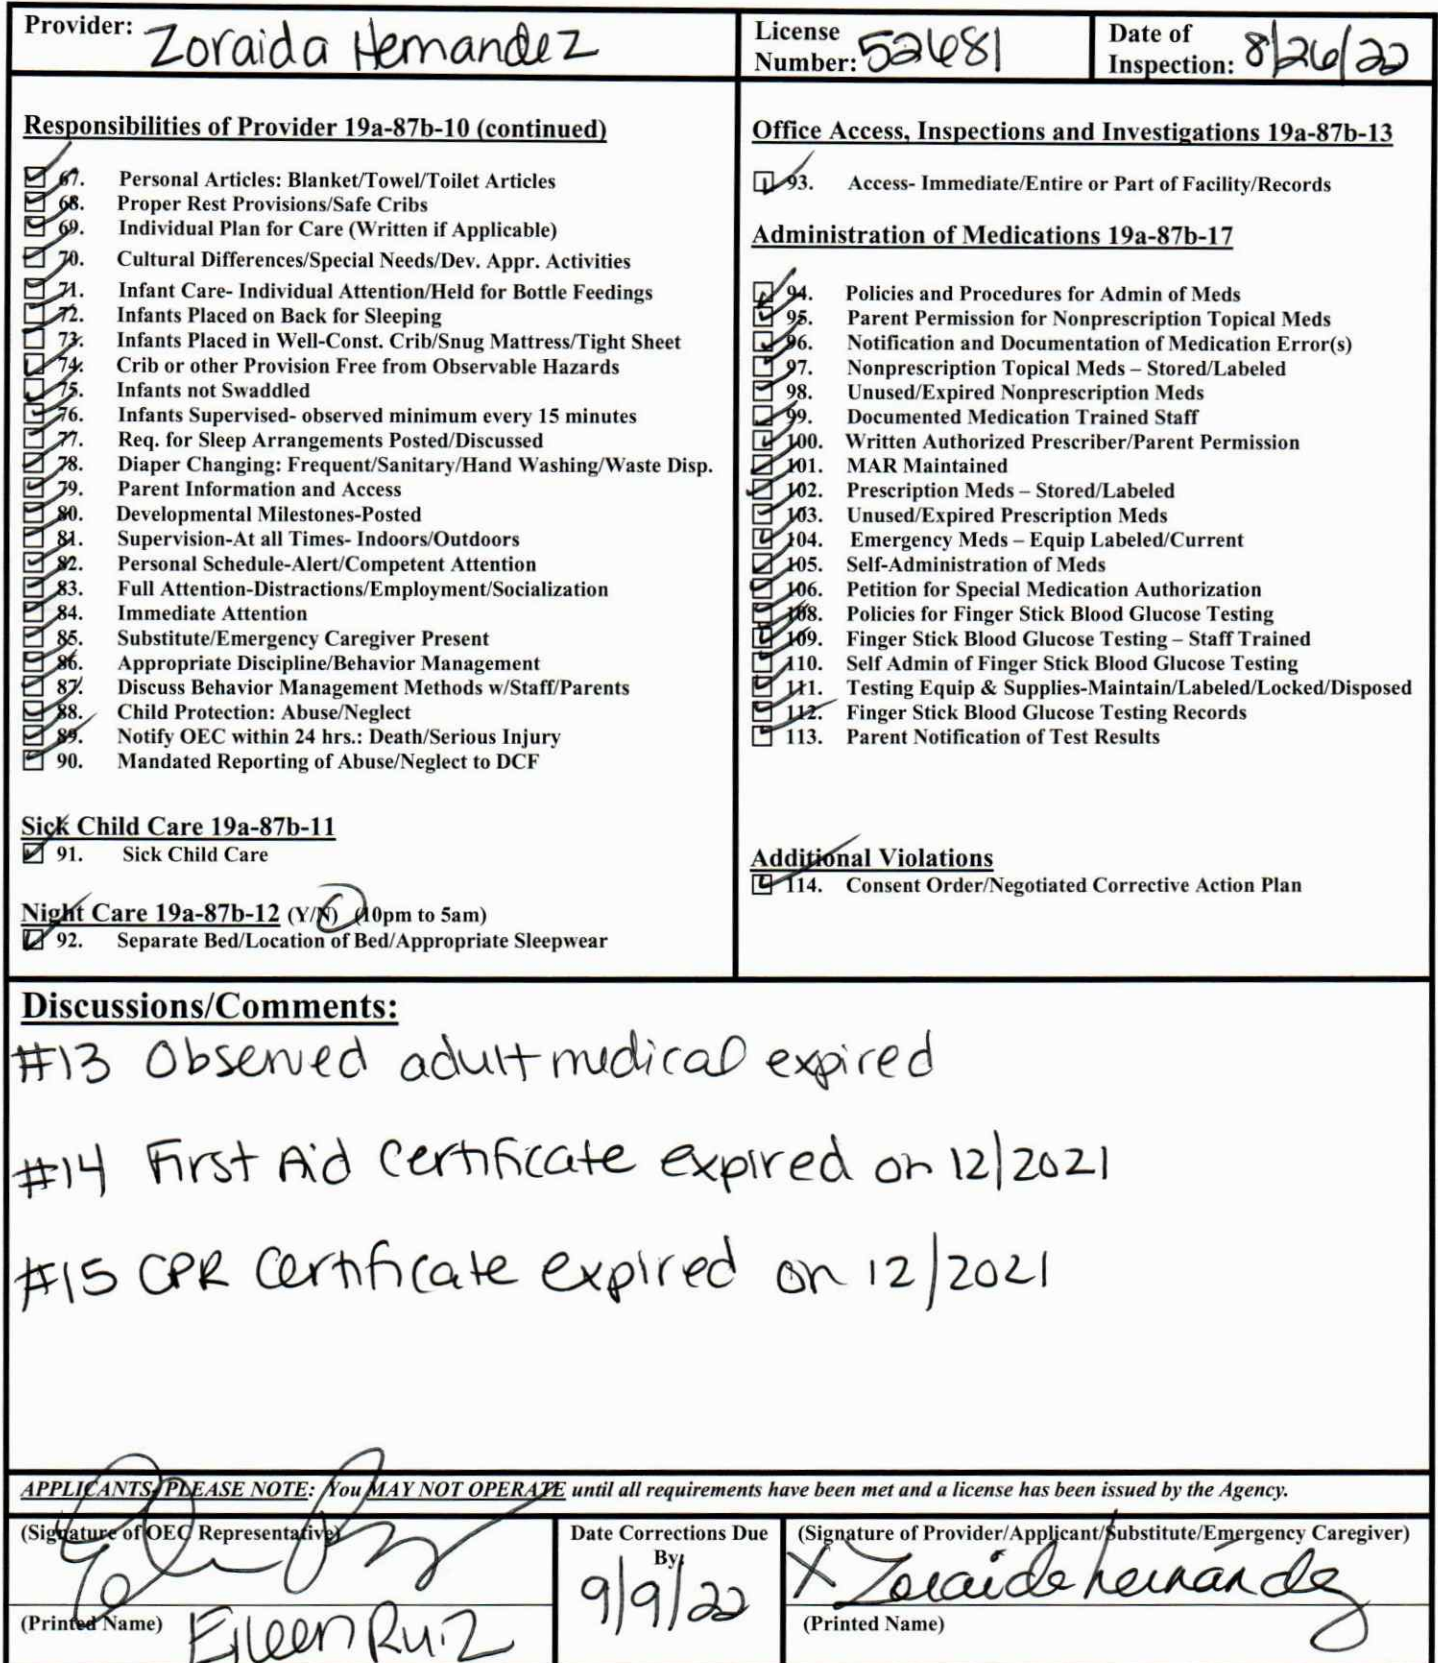 Provider: Zoraida Hernandez
License Number: 52681
Date of Inspection: 8/26/22
Responsibilities of Provider 19a-87b-10 (continued)
67. Personal Articles: Blanket/Towel/Toilet Articles
68. Proper Rest Provisions/Safe Cribs
69. Individual Plan for Care (Written if Applicable)
70. Cultural Differences/Special Needs/Dev. Appr. Activities
71. Infant Care- Individual Attention/Held for Bottle Feedings
72. Infants Placed on Back for Sleeping
73. Infants Placed in Well-Const. Crib/Snug Mattress/Tight Sheet
74. Crib or other Provision Free from Observable Hazards
75. Infants not Swaddled
76. Infants Supervised- observed minimum every 15 minutes
77. Req. for Sleep Arrangements Posted/Discussed
78. Diaper Changing: Frequent/Sanitary/Hand Washing/Waste Disp.
79. Parent Information and Access
80. Developmental Milestones-Posted
81. Supervision-At all Times- Indoors/Outdoors
82. Personal Schedule-Alert/Competent Attention
83. Full Attention-Distractions/Employment/Socialization
84. Immediate Attention
85. Substitute/Emergency Caregiver Present
86. Appropriate Discipline/Behavior Management
87. Discuss Behavior Management Methods w/Staff/Parents
88. Child Protection: Abuse/Neglect
89. Notify OEC within 24 hrs.: Death/Serious Injury
90. Mandated Reporting of Abuse/Neglect to DCF
Sick Child Care 19a-87b-11
91. Sick Child Care
Night Care 19a-87b-12 (Y/N) (10pm to 5am)
92. Separate Bed/Location of Bed/Appropriate Sleepwear
Office Access, Inspections and Investigations 19a-87b-13
93. Access- Immediate/Entire or Part of Facility/Records
Administration of Medications 19a-87b-17
94. Policies and Procedures for Admin of Meds
95. Parent Permission for Nonprescription Topical Meds
96. Notification and Documentation of Medication Error(s)
97. Nonprescription Topical Meds – Stored/Labeled
98. Unused/Expired Nonprescription Meds
99. Documented Medication Trained Staff
100. Written Authorized Prescriber/Parent Permission
101. MAR Maintained
102. Prescription Meds – Stored/Labeled
103. Unused/Expired Prescription Meds
104. Emergency Meds – Equip Labeled/Current
105. Self-Administration of Meds
106. Petition for Special Medication Authorization
108. Policies for Finger Stick Blood Glucose Testing
109. Finger Stick Blood Glucose Testing – Staff Trained
110. Self Admin of Finger Stick Blood Glucose Testing
111. Testing Equip & Supplies-Maintain/Labeled/Locked/Disposed
112. Finger Stick Blood Glucose Testing Records
113. Parent Notification of Test Results
Additional Violations
114. Consent Order/Negotiated Corrective Action Plan
Discussions/Comments:
#13 Observed adult medical expired
#14 First Aid Certificate expired on 12/2021
#15 CPR Certificate expired on 12/2021
APPLICANTS, PLEASE NOTE: You MAY NOT OPERATE until all requirements have been met and a license has been issued by the Agency.
(Signature of OEC Representative)
(Printed Name) Eileen Ruiz
Date Corrections Due By:
9/9/22
(Signature of Provider/Applicant/Substitute/Emergency Caregiver)
X Zoraida hernández
(Printed Name)